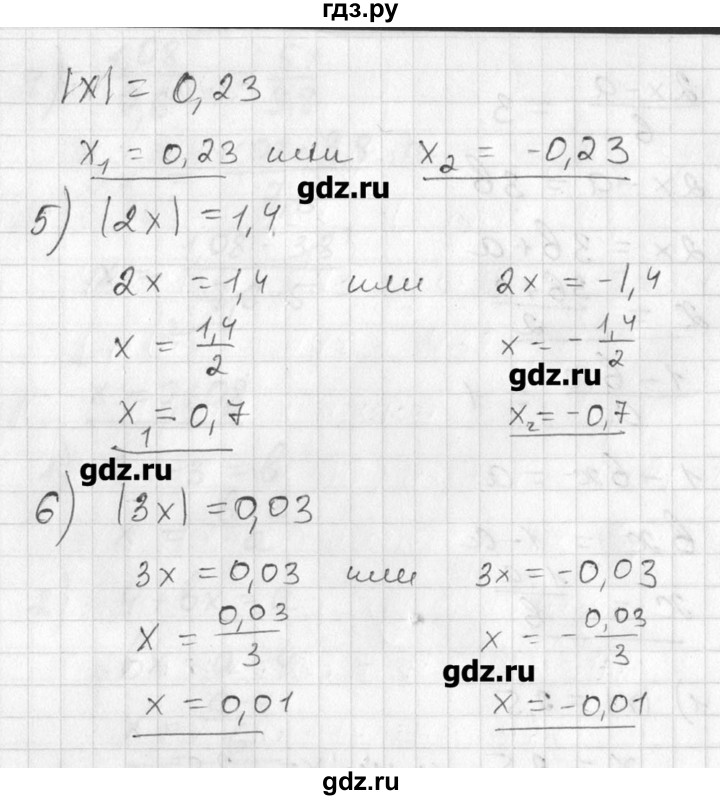 гдз.ру
|x| = 0,23
x₁ = 0,23 или x₂ = -0,23
gdz.ru
5) |2x| = 1,4
2x = 1,4 или 2x = -1,4
x = 1,4/2 x = - 1,4/2
gdz.ru
x₁ = 0,7 x₂ = -0,7
gdz.ru
6) |3x| = 0,03
3x = 0,03 или 3x = -0,03
x = 0,03/3 x = - 0,03/3
gdz.ru
x = 0,01 x = -0,01
gdz.ru